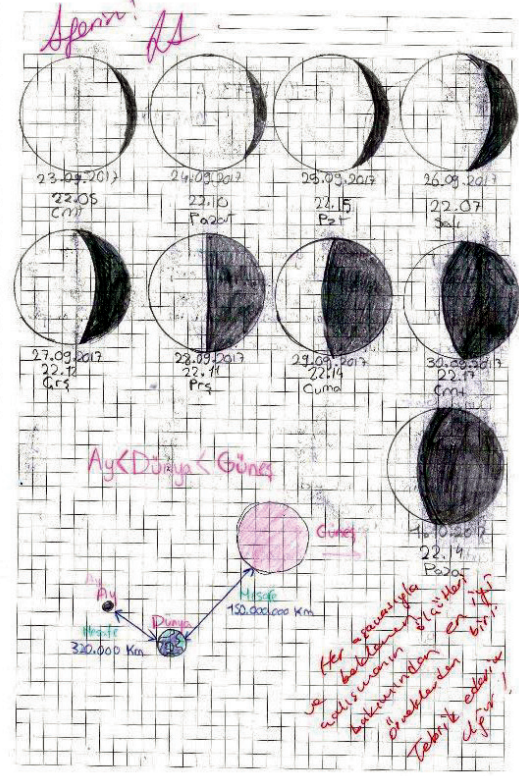 Aferin!
23.09.2017
22.05
Cmt
24.09.2017
22.10
Pazar
25.09.2017
22.15
Pzt
26.09.2017
22.07
Salı
27.09.2017
22.12
Çrş
28.09.2017
22.11
Prş
29.09.2017
22.14
Cuma
30.09.2017
22.17
Cmt
1.10.2017
22.14
Pazar
Ay<Dünya<Güneş
Güneş
Ay
Ay
Mesafe
150.000.000 Km
Dünya
Mesafe
320.000 Km
Her aşamasıyla
ve beklenen
çalışmanın ölçütleri
bakımından en iyi
örneklerden biri
Tebrik ederim